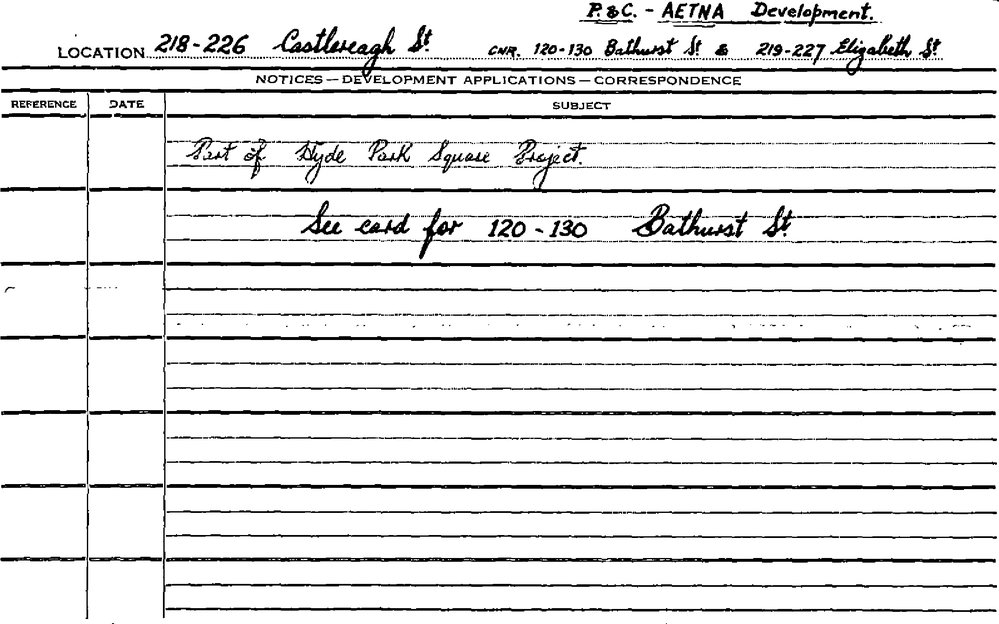 P. & C. - AETNA Development.
LOCATION 218-226 Castlereagh St. CNR. 120-130 Bathurst St. & 219-227 Elizabeth St
NOTICES — DEVELOPMENT APPLICATIONS — CORRESPONDENCE
REFERENCE DATE SUBJECT
Part of Hyde Park Square Project.
See card for 120-130 Bathurst St.